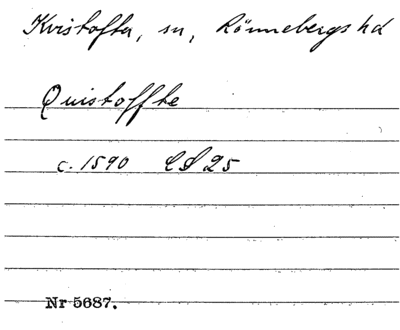 Kvistofta, sn, Rönnebergs hd
Quistoffte
c. 1590 LS 25
Nr 5687.